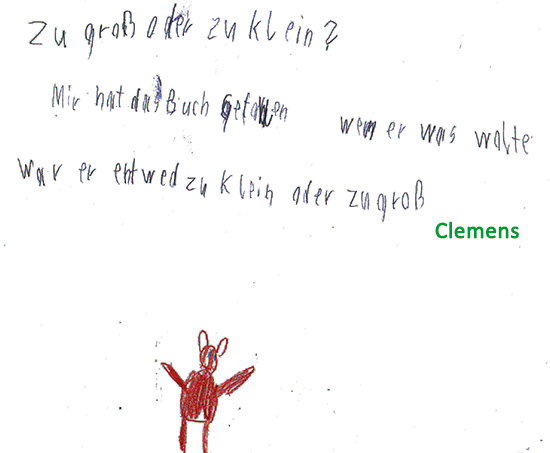 zu groß oder zu klein?
Mir hat das Buch gefallen wenn er was wolte
war er entwed zu klein oder zu groß
Clemens